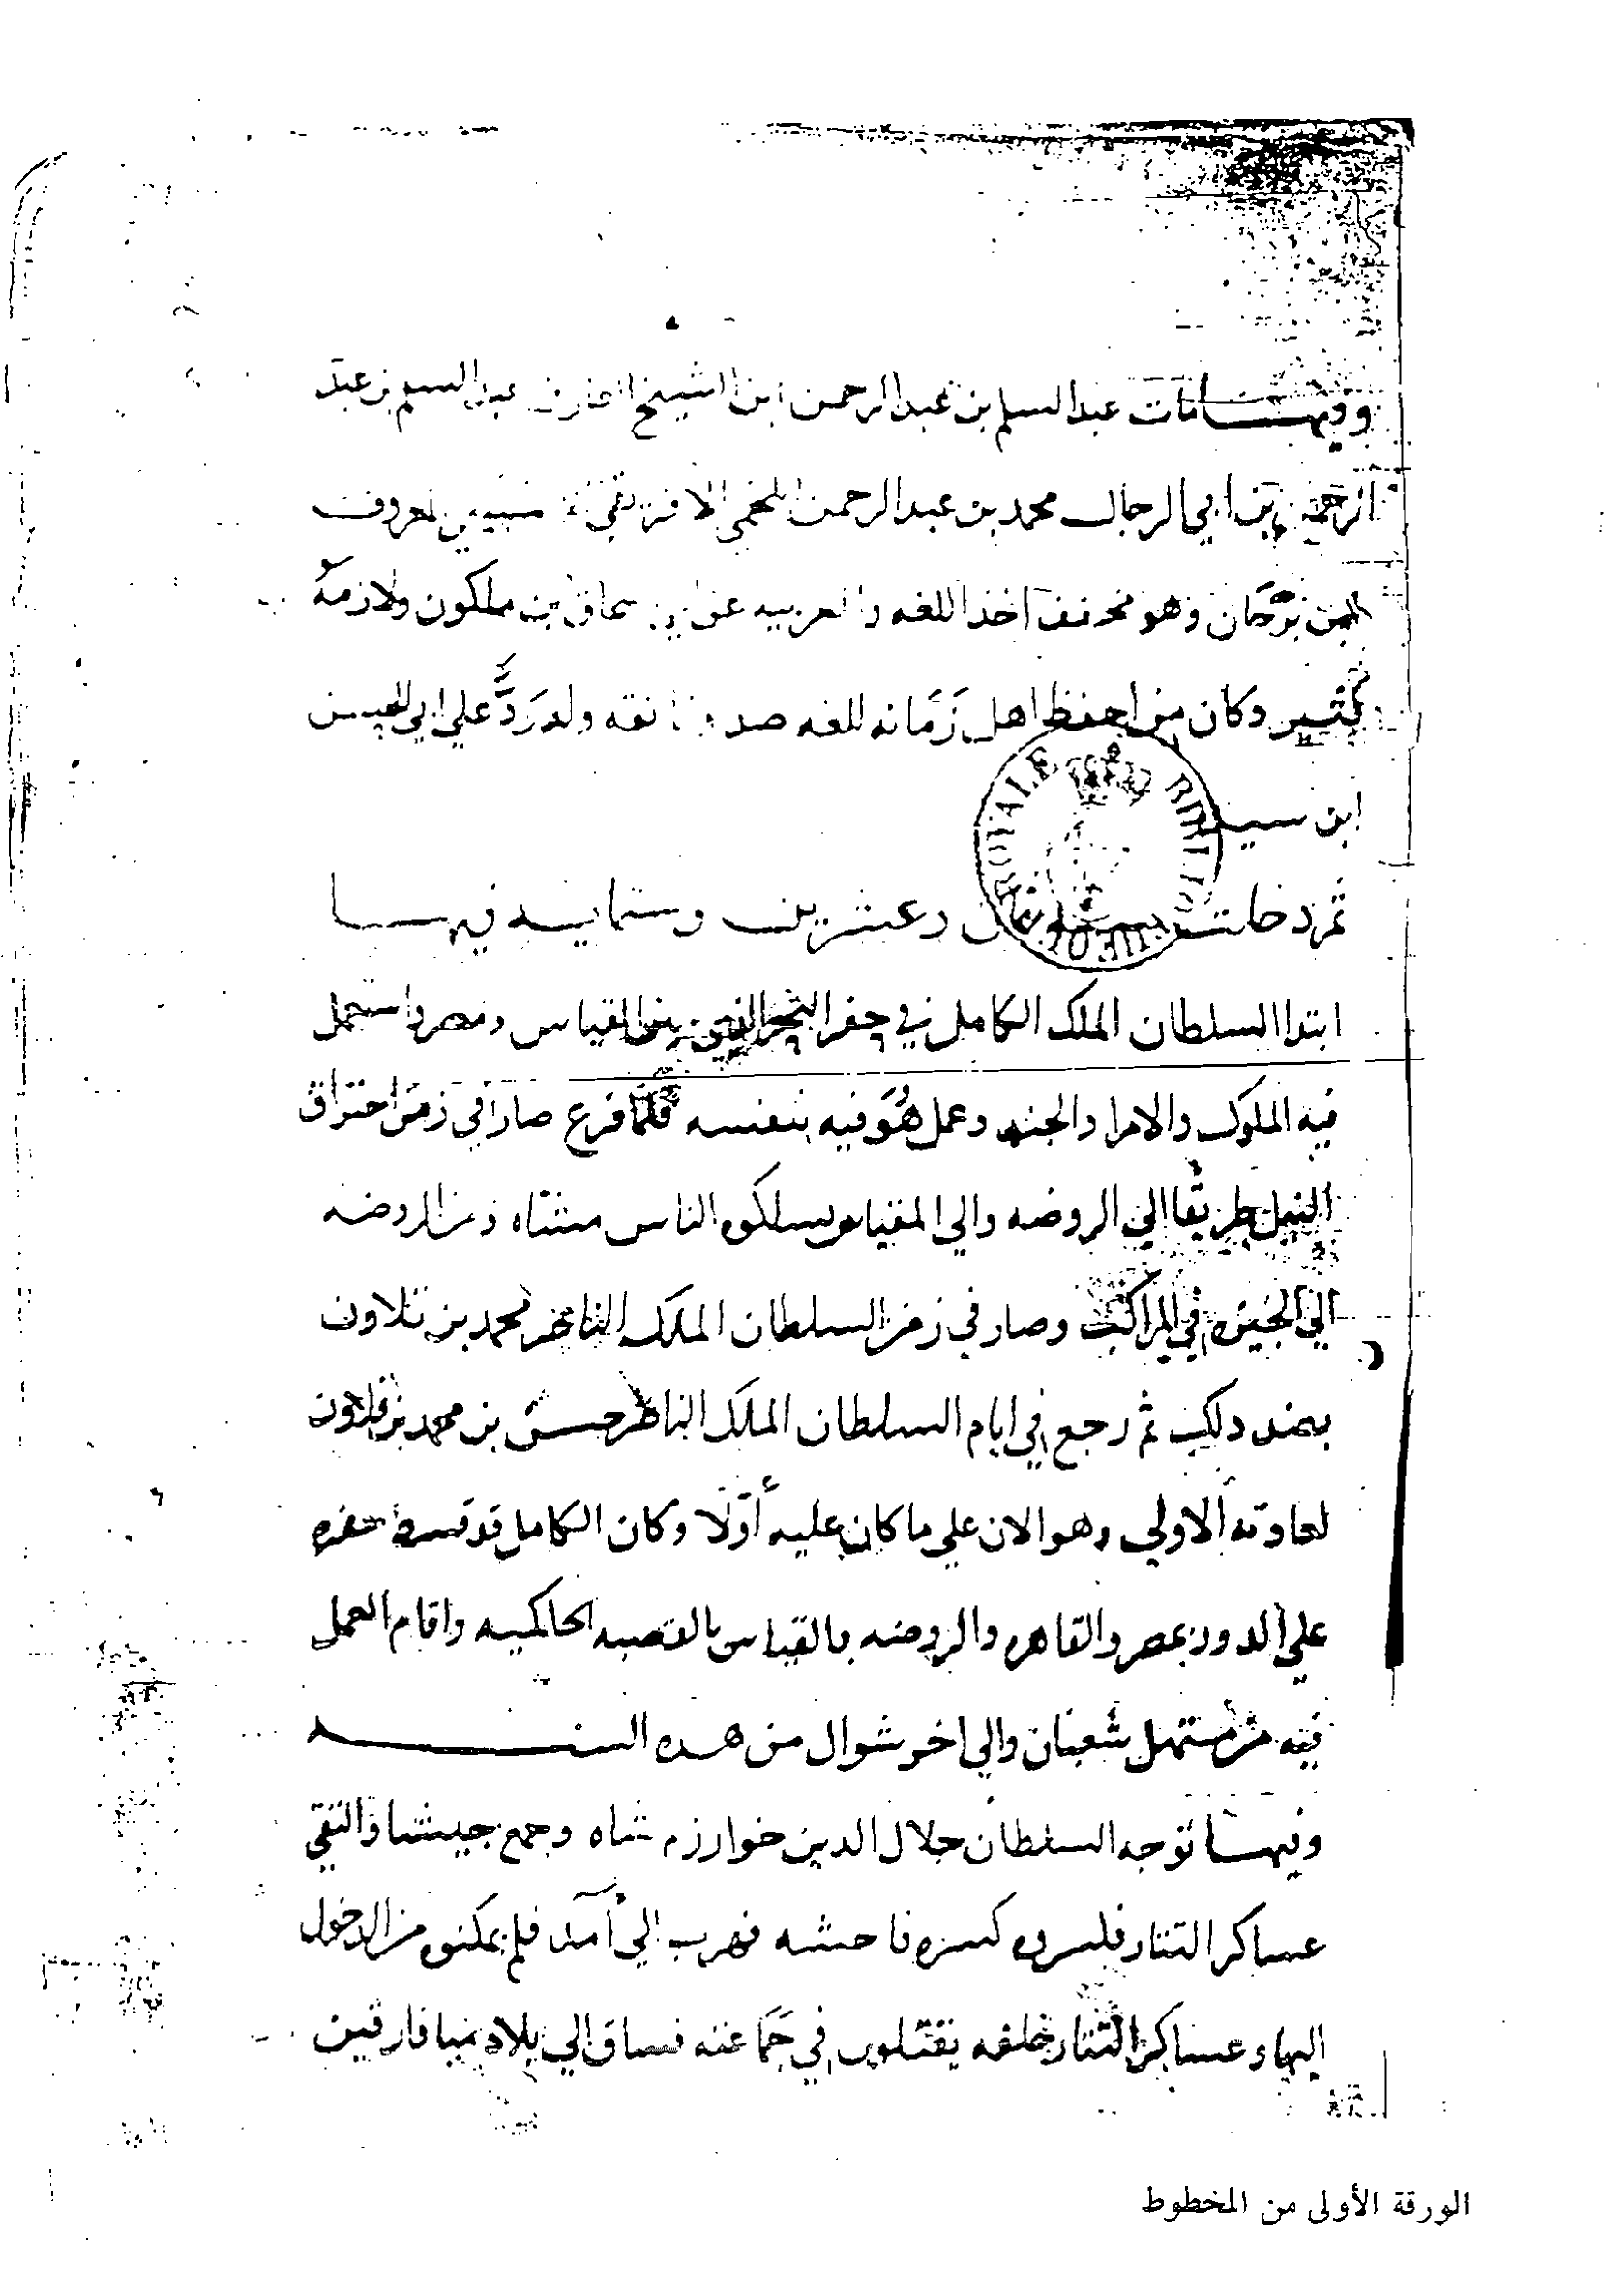 وفيها مات عبد السلم بن عبد الرحمن ابن الشيخ العارف عبد السلم بن عبد
الرحمن بن ابي الرجال محمد بن عبد الرحمن اللخمي الافريقي المعروف
بابن برجان وهو مخفف اخذ اللغه والعربيه عن ابي اسحاق بن ملكون ولازمه
كثير وكان من احفظ اهل زمانه للغه صدوقا ثقه وله رد علي ابي الحسن
ابن سيده
ثم دخلت سنة ثمان وعشرين وستمايه فيها
ابتدا السلطان الملك الكامل في حفر البحر الذي بين المقياس ومصر واستعمل
فيه الملوك والامرا والجند وعمل هو فيه بنفسه فلما فرغ صار في زمن احتراق
النيل طريقا الي الروضه والي المقياس يسلكه الناس مشاه ومن الروضه
الي الجيزه في المراكب وصار في زمن السلطان الملك الناصر محمد بن قلاون
بضد دلك ثم رجع في ايام السلطان الملك الناصر حسن بن محمد بن قلاون
لعادته الاولي وهو الان علي ما كان عليه أولا وكان الكامل قد قسم حفره
علي الدور بمصر والقاهره والروضه بالقياس بالقصبه الحاكميه واقام العمل
فيه من مستهل شعبان والي اخر شوال من هده السنه
وفيها توجه السلطان جلال الدين خوارزم شاه وجمع جيشا والتقي
عساكر التتار فكسروه كسره فاحشه فهرب الي آمد فلم يمكنوه من الدخول
اليها وعساكر التتار خلفه يقتلون في جماعته فساق الي بلاد ميا فارقين
BIBLIOTHECAE REGIAE
الورقة الأولى من المخطوط